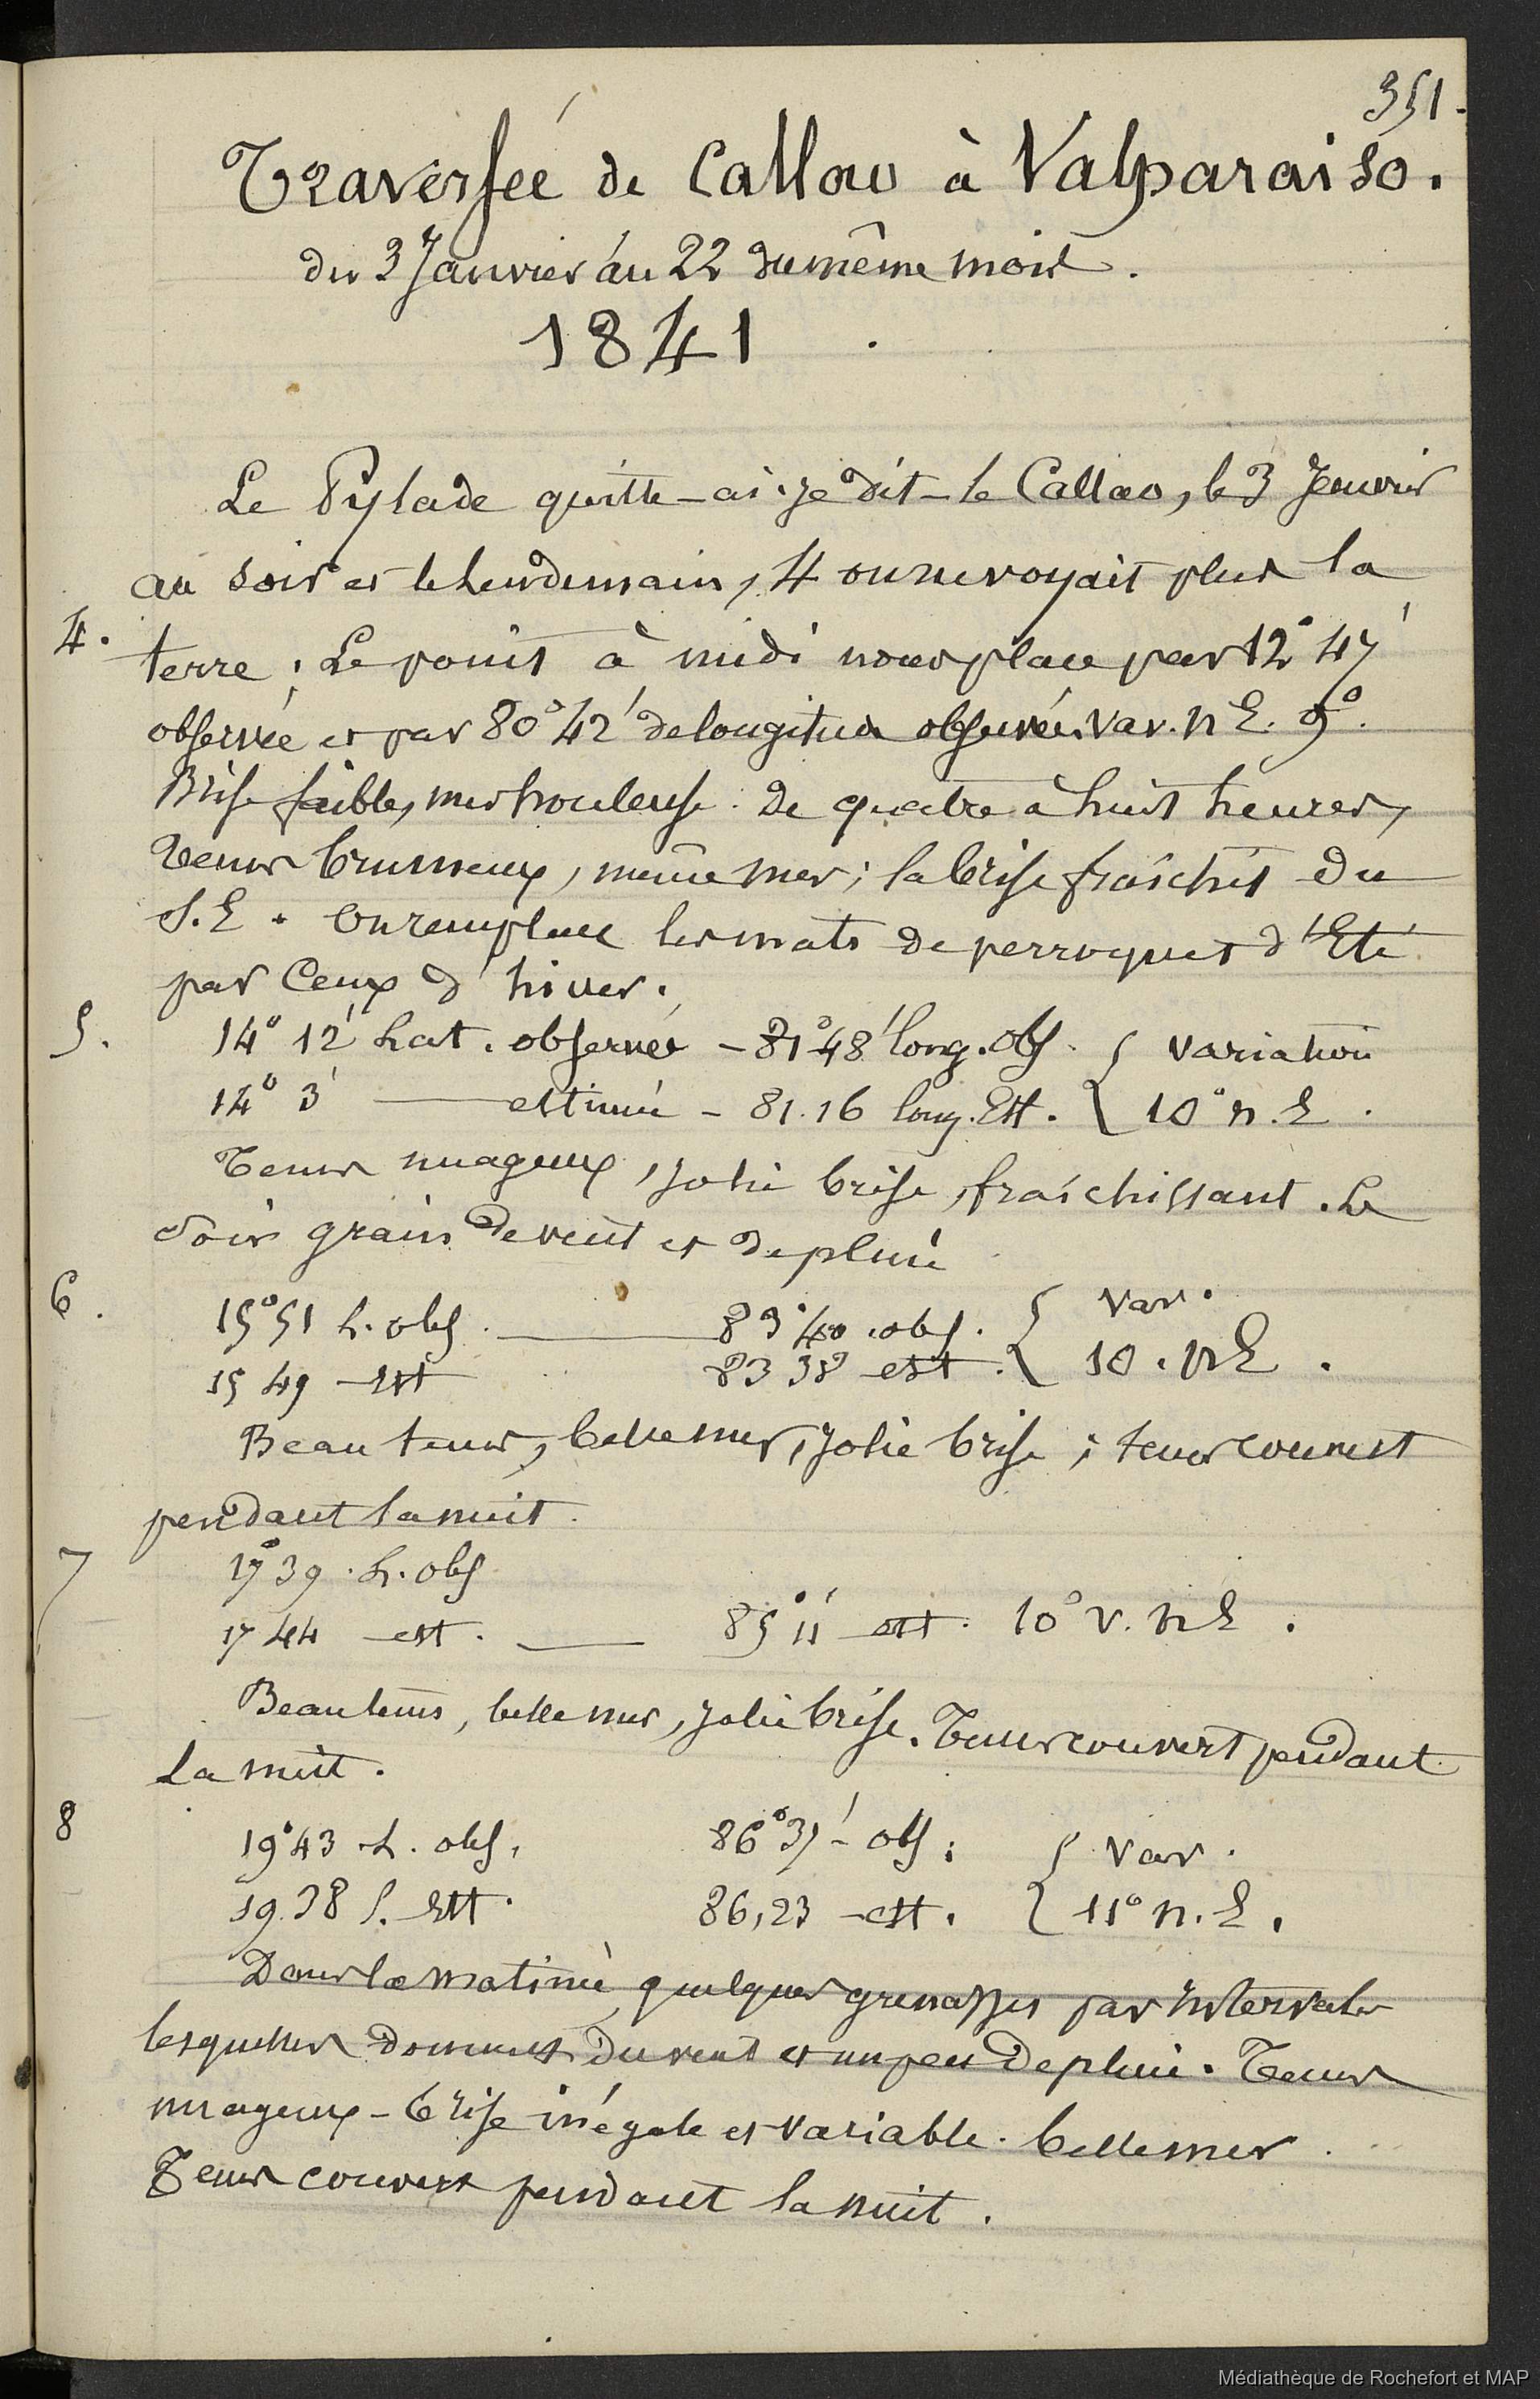 351.
Traversée de Callao à Valparaiso.
du 3 Janvier au 22 du même mois.
1841
Le Pylade quitte - ai-je dit - le Callao, le 3 Janvier
au soir et le lendemain, 4 on ne voyait plus la
4. terre ; Le point à midi nous place par 12° 47'
observée et par 80° 42' de longitude observée. Var. N E. 9°.
Brise faible, mer houleuse. De quatre à huit heures,
Temps brumeux, même mer ; la brise fraîchit du
S. E. On remplace les mats de perroquet d'Eté
par Ceux d'hiver.
5. 14° 12' Lat. observée - 81° 48' long. obs. { variation
14° 3' — estimée - 81.16 long. Est. { 10° N. E.
Temps nuageux, jolie brise, fraîchissant. Le
Soir grain de vent et de pluie
6. 15° 51 L. obs. — 83° 40 . obs. { Var.
15 49 - Est 83 38 - est. { 10. N E.
Beau temps, belle mer, jolie brise ; temps couvert
pendant la nuit.
7 17° 39 . L. obs
17 44 - est. — 85° 11' est. 10° V. N E.
Beau tems, belle mer, jolie brise. Temps couvert pendant
La nuit.
8 19° 43 L. obs. 86° 37' - obs. { Var.
19.38 L. Est. 86,23 - est. { 11° N. E.
Dans la matinée quelques grenasses par Intervales
lesquelles donnent du vent et un peu de pluie. Temps
nuageux - brise inégale et variable. belle mer.
Temps couvert pendant la nuit.
Médiathèque de Rochefort et MAP